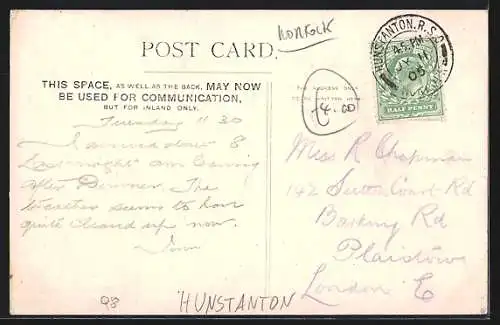 NORFOLK
POST CARD.
HUNSTANTON. R.S.O
4.5 PM
11
05
HALF PENNY
THIS SPACE, AS WELL AS THE BACK, MAY NOW
BE USED FOR COMMUNICATION,
BUT FOR INLAND ONLY.
THE ADDRESS ONLY
4.00
Tuesday 11 30
I arrived down 8
Last night am
after Dinner. The
Weather seems to have
quite cleared up now.
Miss R Chapman
142 Sutton Court Rd
Barking Rd
Plaistow
London E
98
HUNSTANTON